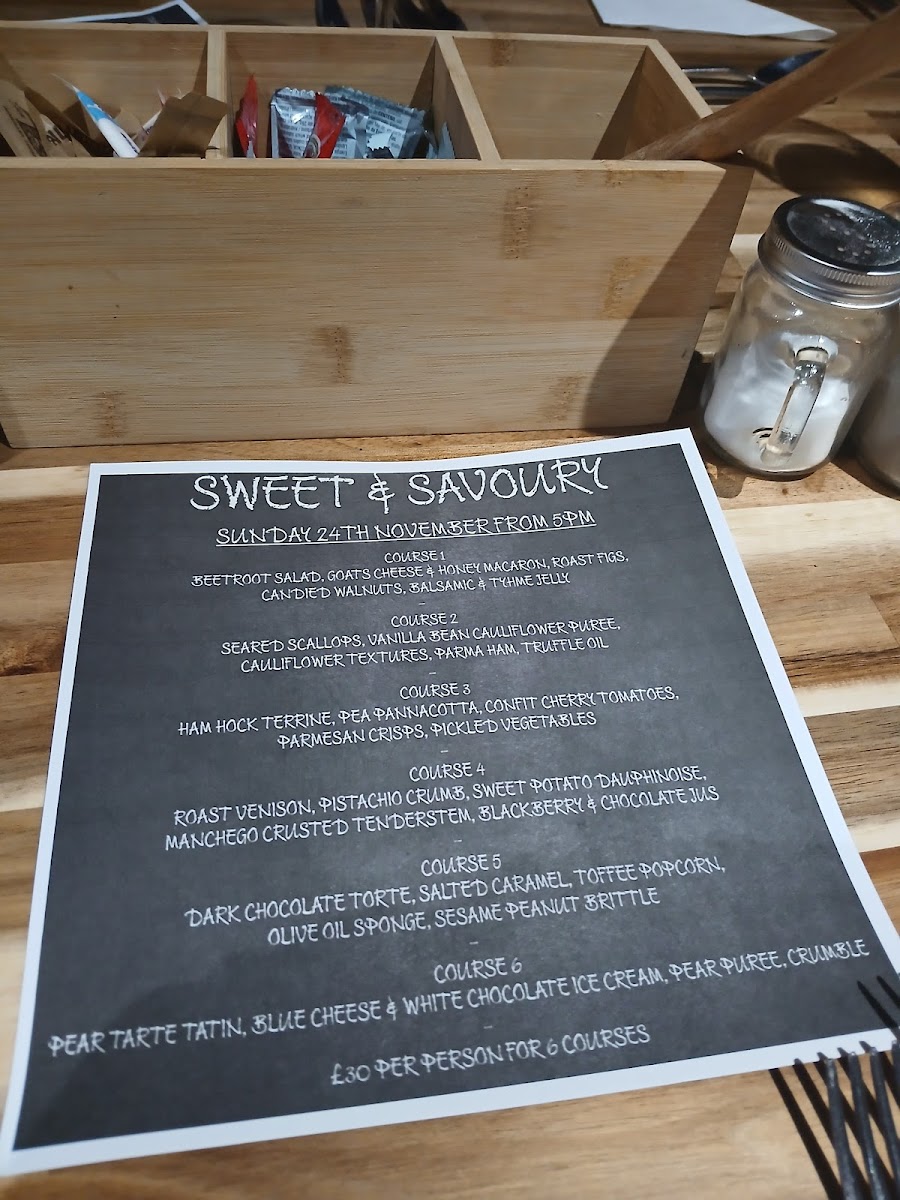 SWEET & SAVOURY
SUNDAY 24TH NOVEMBER FROM 5PM
COURSE 1
BEETROOT SALAD, GOATS CHEESE & HONEY MACARON, ROAST FIGS,
CANDIED WALNUTS, BALSAMIC & TYHME JELLY
–
COURSE 2
SEARED SCALLOPS, VANILLA BEAN CAULIFLOWER PUREE,
CAULIFLOWER TEXTURES, PARMA HAM, TRUFFLE OIL
–
COURSE 3
HAM HOCK TERRINE, PEA PANNACOTTA, CONFIT CHERRY TOMATOES,
PARMESAN CRISPS, PICKLED VEGETABLES
–
COURSE 4
ROAST VENISON, PISTACHIO CRUMB, SWEET POTATO DAUPHINOISE,
MANCHEGO CRUSTED TENDERSTEM, BLACKBERRY & CHOCOLATE JUS
–
COURSE 5
DARK CHOCOLATE TORTE, SALTED CARAMEL, TOFFEE POPCORN,
OLIVE OIL SPONGE, SESAME PEANUT BRITTLE
–
COURSE 6
PEAR TARTE TATIN, BLUE CHEESE & WHITE CHOCOLATE ICE CREAM, PEAR PUREE, CRUMBLE
–
£30 PER PERSON FOR 6 COURSES